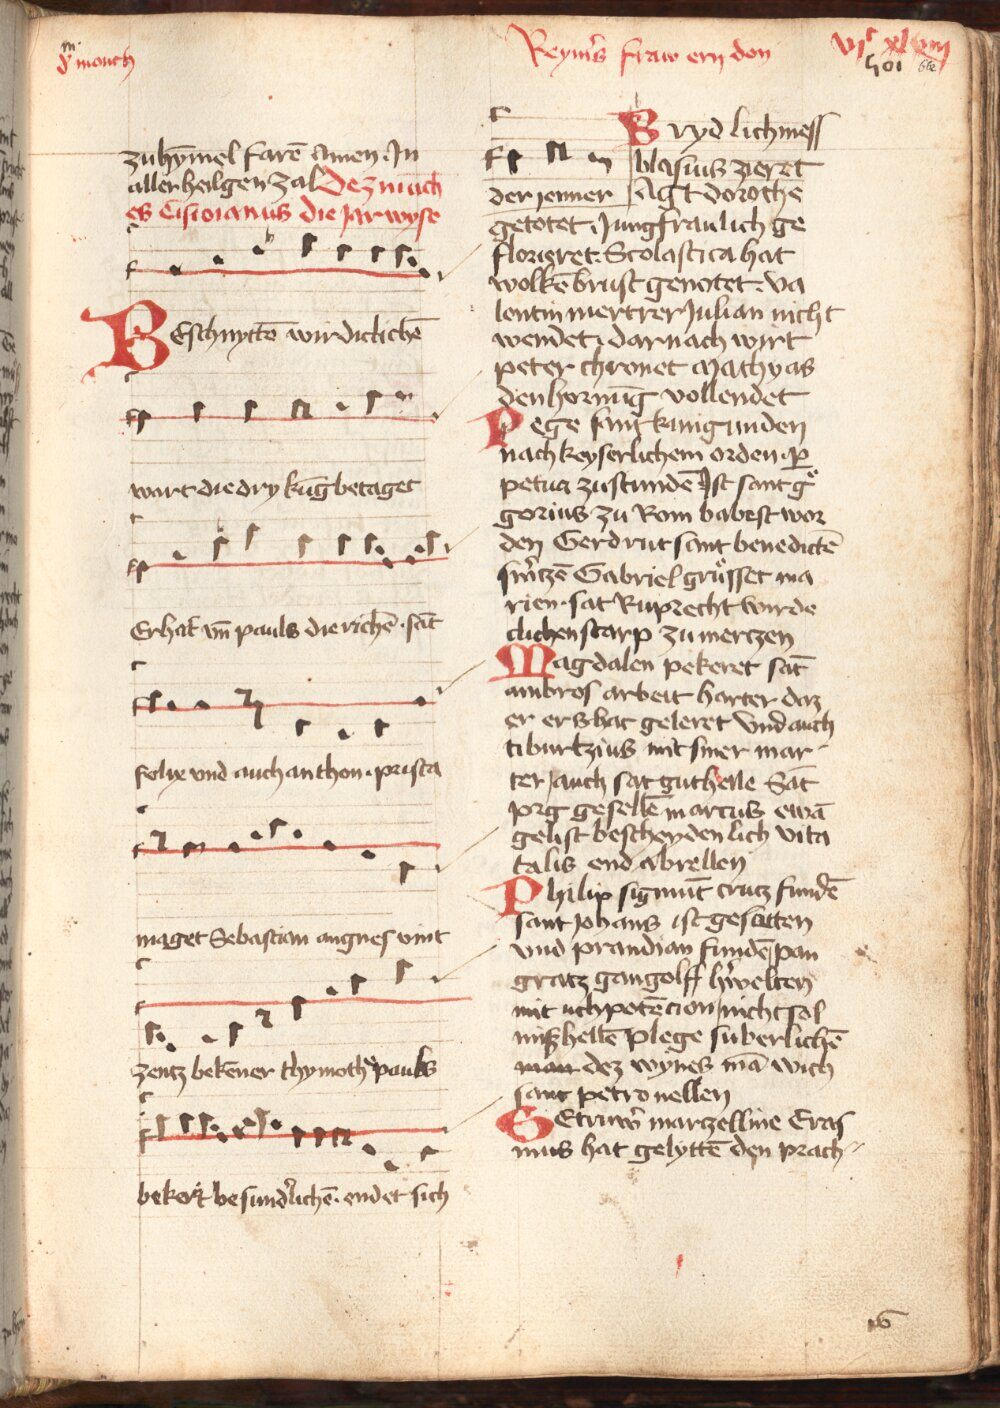 m
d᷑ monch
Reyms᷑ fraw ern don
VIᶜ xlviii
hoi 662
zu hym̄el farē Amen · In
aller heilgen zal Dez münch
es Cisioianus die Jar wyse
BEschnyttē wirdiclichē
wart die dry kūg betaget
Erhat vn̄ pauls die richē · sāt
felix vnd auch anthon · prista
maget Sebastian angnes vint
zentz bekener thymothe pauls
bekort besund᷑lichē · endet sich
der jenner
Bryd lichmess
blasius zieret
Agt dorothe
getotet · Jungfraulich ge
florieret · Scolastica hat
wolkēbrust genotet · va
lentin mertrer Julian nicht
wendet · darnach wirt
peter chronet Mathyas
den hornūg vollendet
Pege sant kunigunden
nach keyserlichem orden · ꝑ
petua zu stundē Ist sant gͦ
gorius zu Rom babest wor
den Gerdrut sant benedictē
sm̄tzē Gabriel grüsset ma
rien · sāt Ruprecht wurde
clichen starp zu mertzen
Magdalen pekeret sāt
ambros arbeit harter daz
er ers hat geleret Vnd auch
tiburtzius mit siner mar
ter / auch sāt guthelle Sāt
Jorg gesellē marcus ewā
gelist bescheydenlich vita
talis end abrellen
Philip sigmūt crutz fundē
sant Johans ist gesotten
vnd prandian funden / pan
gratz gangolff h᷑welten
mit vchpotēcion / nicht sol
mißhellē Plege suberlichē
man dez wynes mā wich
sant petronellen
Getruw᷑ marzelline Eras
mus hat gelyttē den prach
16